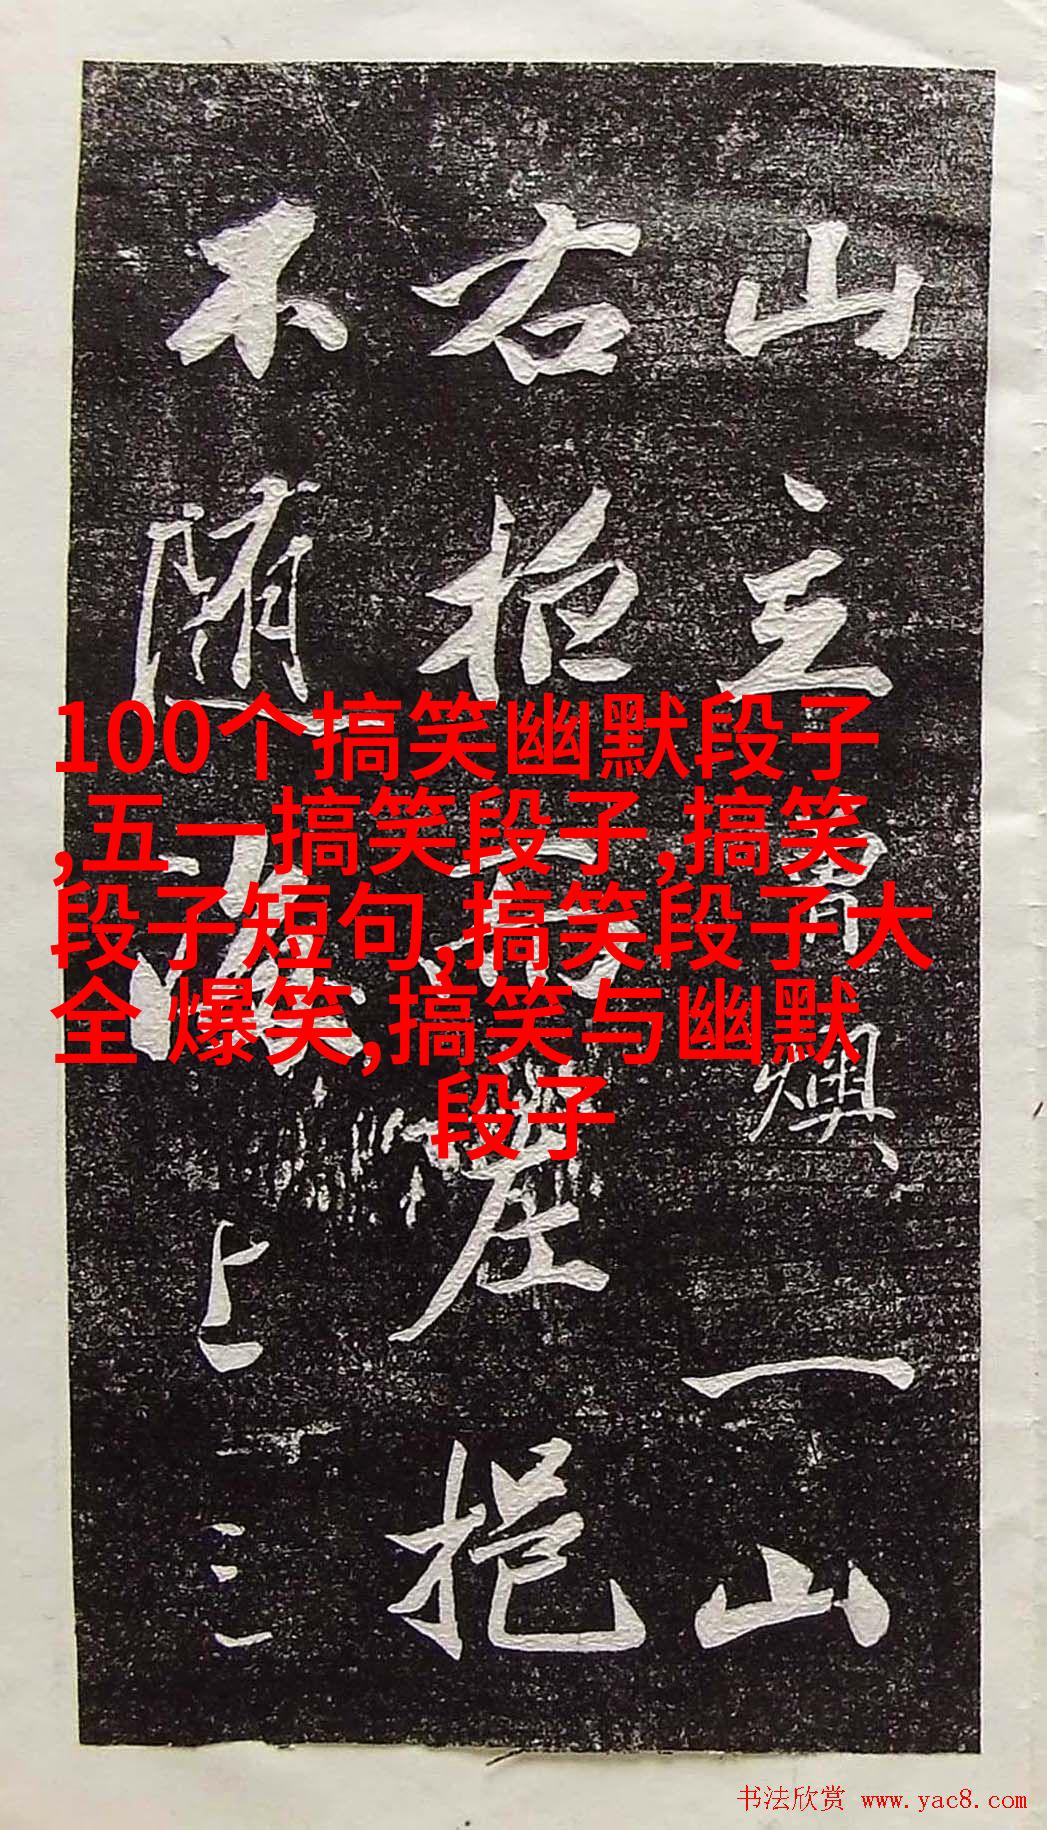 山主 一山
右 左挹
不随 上三
100个搞笑幽默段子
,五一搞笑段子,搞笑
段子短句,搞笑段子大
全 爆笑,搞笑与幽默
段子
书法欣赏 www.yac8.com